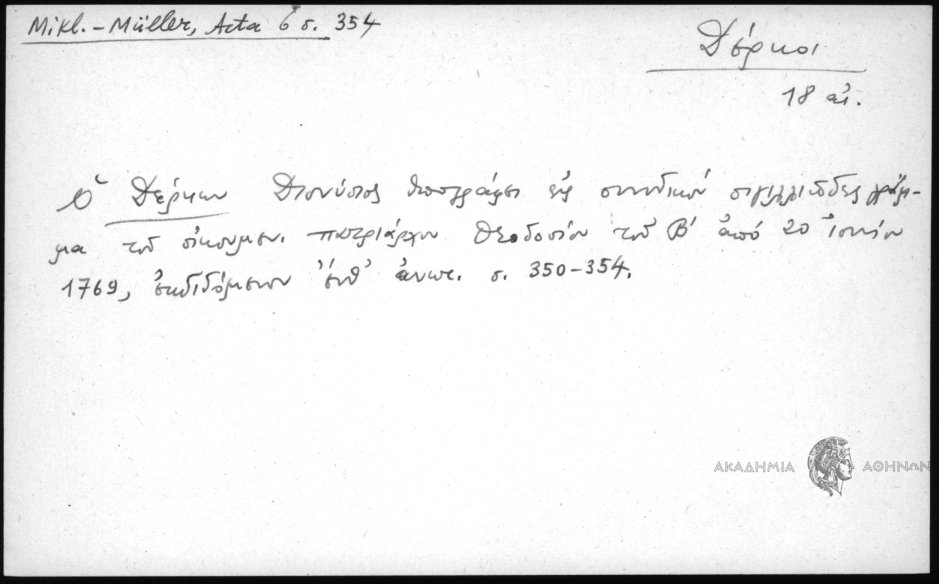 Mikl.-Müller, Acta 6 σ. 354
Δέρκοι
18 αἰ.
Ὁ Δέρκων Διονύσιος ὑπογράφει εἰς συνοδικὸν σιγιλλιῶδες γράμ-
μα τοῦ οἰκουμεν. πατριάρχου Θεοδοσίου τοῦ Β' ἀπὸ 20 Ἰουνίου
1769, ἐκδιδόμενον ἔνθ' ἀνωτ. σ. 350-354.
ΑΚΑΔΗΜΙΑ ΑΘΗΝΩΝ